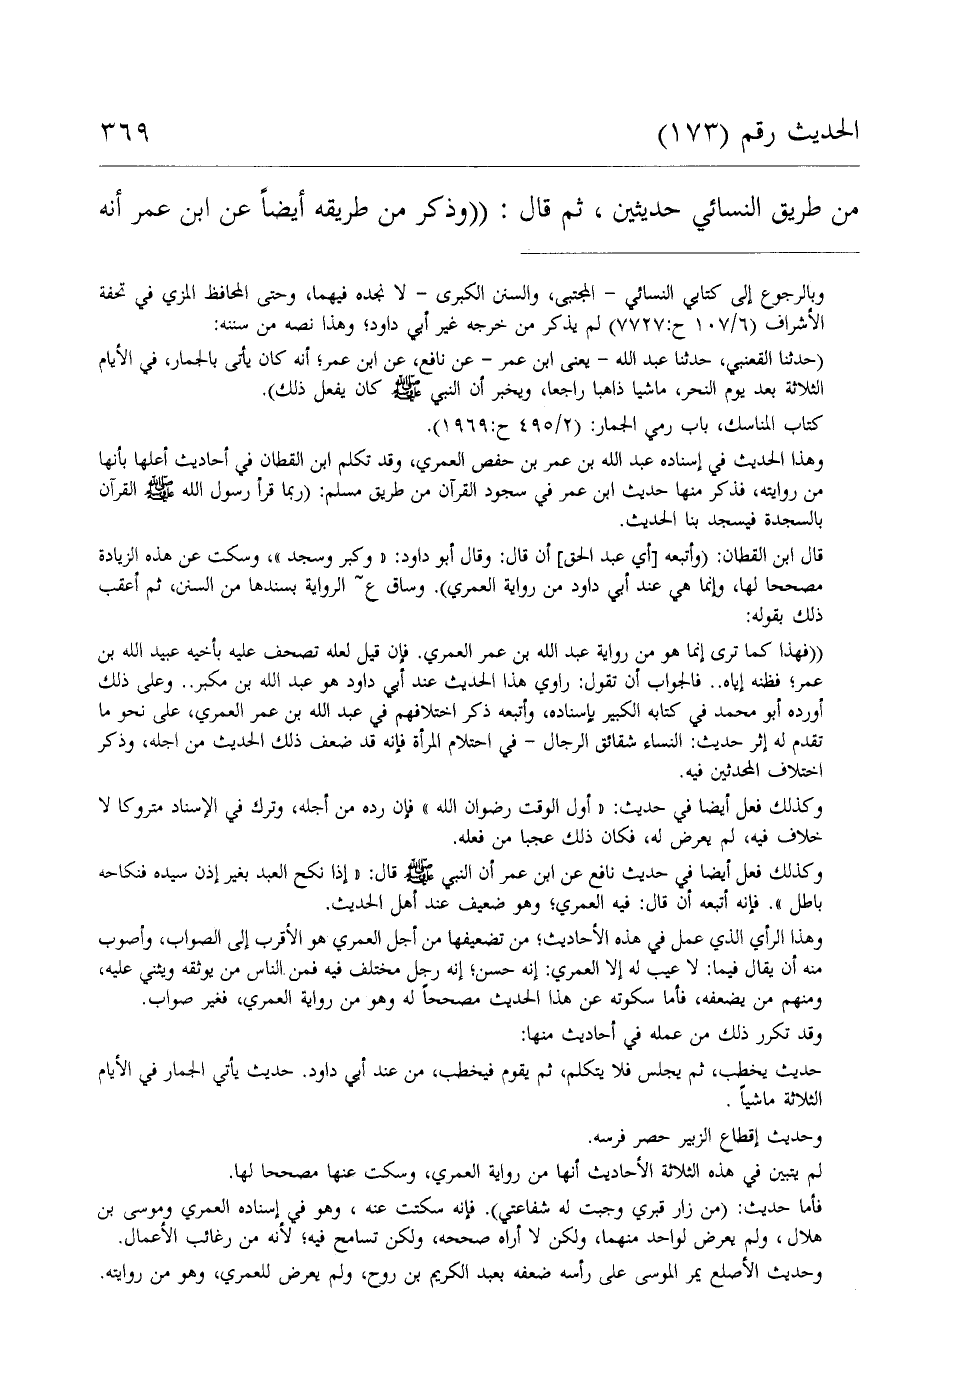 الحديث رقم (١٧٣)
٣٦٩
من طريق النسائي حديثين ، ثم قال : ((وذكر من طريقه أيضاً عن ابن عمر أنه
وبالرجوع إلى كتابي النسائي – المجتبى، والسنن الكبرى – لا نجده فيهما، وحتى المحافظ المزي في تحفة
الأشراف (٦/١٠٧ ح:٧٧٢٧) لم يذكر من خرجه غير أبي داود؛ وهذا نصه من سننه:
(حدثنا القعنبي، حدثنا عبد الله – يعنى ابن عمر – عن نافع، عن ابن عمر؛ أنه كان يأتى بالجمار، في الأيام
الثلاثة بعد يوم النحر، ماشيا ذاهبا راجعا، ويخبر أن النبي ﷺ كان يفعل ذلك).
كتاب المناسك، باب رمي الجمار: (٢/٤٩٥ ح:١٩٦٩).
وهذا الحديث في إسناده عبد الله بن عمر بن حفص العمري، وقد تكلم ابن القطان في أحاديث أعلها بأنها
من روايته، فذكر منها حديث ابن عمر في سجود القرآن من طريق مسلم: (ربما قرأ رسول الله ﷺ القرآن
بالسجدة فيسجد بنا الحديث.
قال ابن القطان: (وأتبعه [أي عبد الحق] أن قال: وقال أبو داود: « وكبر وسجد »، وسكت عن هذه الزيادة
مصححا لها، وإنما هي عند أبي داود من رواية العمري). وساق ع~ الرواية بسندها من السنن، ثم أعقب
ذلك بقوله:
((فهذا كما ترى إنما هو من رواية عبد الله بن عمر العمري. فإن قيل لعله تصحف عليه بأخيه عبيد الله بن
عمر؛ فظنه إياه.. فالجواب أن تقول: راوي هذا الحديث عند أبي داود هو عبد الله بن مكبر.. وعلى ذلك
أورده أبو محمد في كتابه الكبير بإسناده، وأتبعه ذكر اختلافهم في عبد الله بن عمر العمري، على نحو ما
تقدم له إثر حديث: النساء شقائق الرجال – في احتلام المرأة فإنه قد ضعف ذلك الحديث من اجله، وذكر
اختلاف المحدثين فيه.
وكذلك فعل أيضا في حديث: « أول الوقت رضوان الله » فإن رده من أجله، وترك في الإسناد متروكا لا
خلاف فيه، لم يعرض له، فكان ذلك عجبا من فعله.
وكذلك فعل أيضا في حديث نافع عن ابن عمر أن النبي ﷺ قال: « إذا نكح العبد بغير إذن سيده فنكاحه
باطل ». فإنه أتبعه أن قال: فيه العمري؛ وهو ضعيف عند أهل الحديث.
وهذا الرأي الذي عمل في هذه الأحاديث؛ من تضعيفها من أجل العمري هو الأقرب إلى الصواب، وأصوب
منه أن يقال فيما: لا عيب له إلا العمري: إنه حسن؛ إنه رجل مختلف فيه فمن الناس من يوثقه ويثني عليه،
ومنهم من يضعفه، فأما سكوته عن هذا الحديث مصححاً له وهو من رواية العمري، فغير صواب.
وقد تكرر ذلك من عمله في أحاديث منها:
حديث يخطب، ثم يجلس فلا يتكلم، ثم يقوم فيخطب، من عند أبي داود. حديث يأتي الجمار في الأيام
الثلاثة ماشياً .
وحديث إقطاع الزبير حصر فرسه.
لم يتبين في هذه الثلاثة الأحاديث أنها من رواية العمري، وسكت عنها مصححا لها.
فأما حديث: (من زار قبري وجبت له شفاعتي). فإنه سكتت عنه ، وهو في إسناده العمري وموسى بن
هلال ، ولم يعرض لواحد منهما، ولكن لا أراه صححه، ولكن تسامح فيه؛ لأنه من رغائب الأعمال.
وحديث الأصلع يمر الموسى على رأسه ضعفه بعبد الكريم بن روح، ولم يعرض للعمري، وهو من روايته.